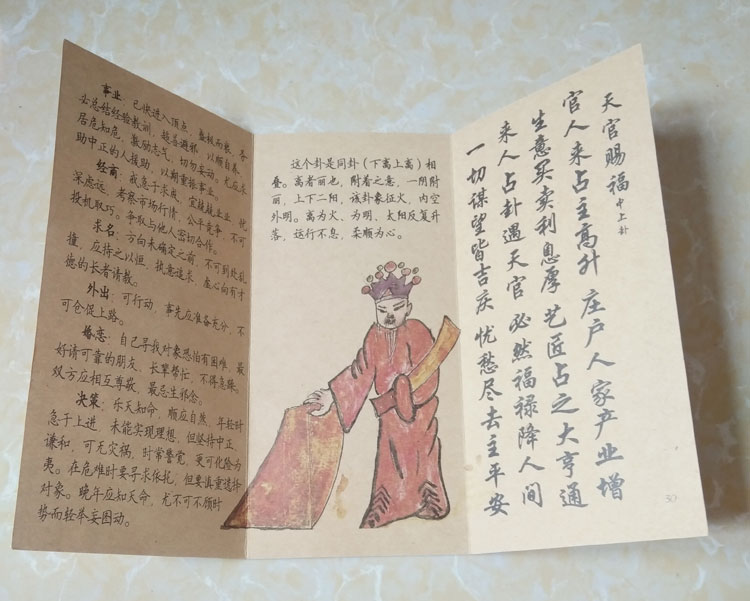 事业：已快进入顶点，盛极而衰，务
必总结经验教训，趋善避祸，以顺自养，
居危知危，激励志气，切勿妄动。尤应求
助中正的人援助，以期重振事业。
经商：戒急于求成，宜兢兢业业，忧
深虑远。考察市场行情，公平竞争，不可
投机取巧。争取与他人密切合作。
求名：方向未确定之前，不可到处乱
撞，应持之以恒，执意追求，虚心向有才
德的长者请教。
外出：可行动，事先应准备充分，不
可仓促上路。
婚恋：自己寻找对象恐怕有困难，最
好请可靠的朋友、长辈帮忙，不得急躁。
双方应相互尊敬，最忌生邪念。
决策：乐天知命，顺应自然。年轻时
急于上进，未能实现理想，但坚持中正、
谦和，可无灾祸，时常警觉，更可化险为
夷。在危难时要寻求依托，但要慎重选择
对象。晚年应知天命，尤不可不顾时
势而轻举妄动。
这个卦是同卦（下离上离）相
叠。离者丽也，附着之意，一阴附
丽，上下二阳，该卦象征火，内空
外明。离为火、为明，太阳反复升
落，运行不息，柔顺为心。
天官赐福 中上卦
官人来占主高升 庄户人家产业增
生意买卖利息厚 艺匠占之大亨通
来人占卦遇天官 必然福禄降人间
一切谋望皆吉庆 忧愁尽去主平安
30